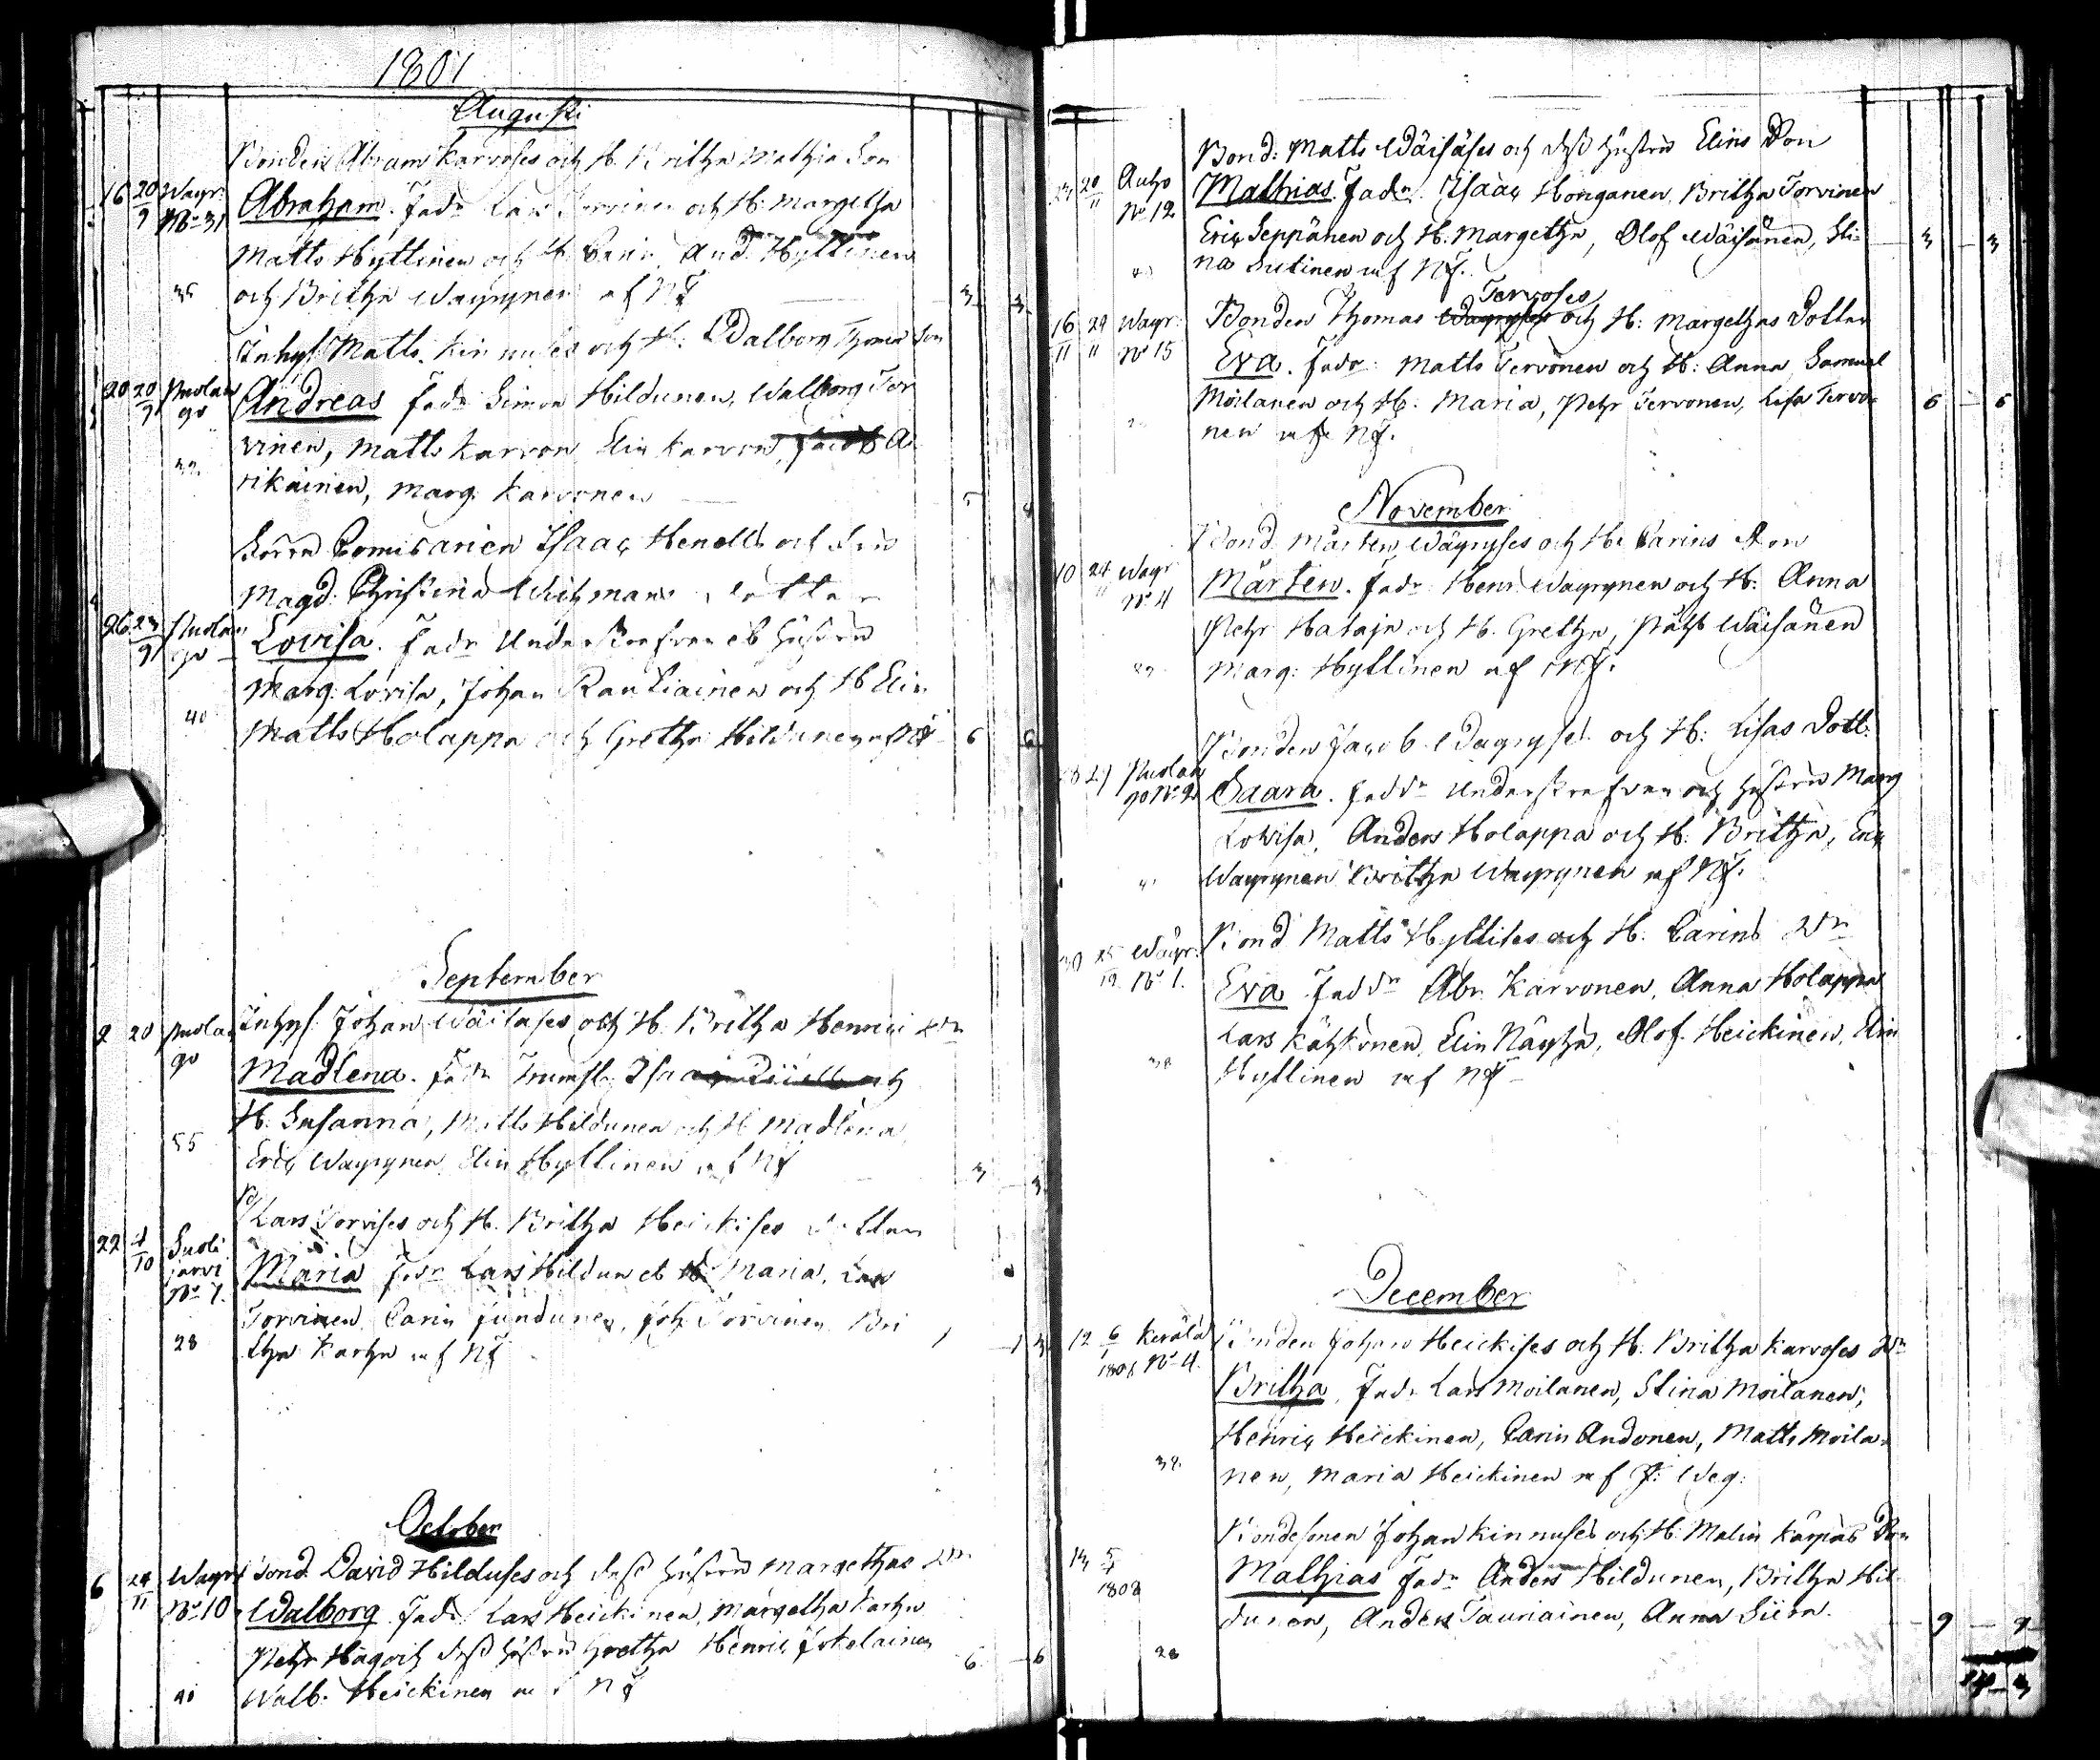 1801
Augusti
Bonden Abram Karvoses och H. Britha Mathia Son
16 20/9 Wayr: No 31 Abraham. Fadr Lars Torvinen och H: Margetha
Matts Hyttinen och H. Carin, And. Hyttinen
35 och Britha Wayrynen af NF 3 3
Inhys: Matts Kinnuses och H. Walborg Son
20 20/9 Puolango Andreas Fadr Simon Hildunen, Walborg Tor
vinen, Matts Karvon Elin Karvon, Jacob A
32 rikainen, Marg. Karvonen 5
Herrn Comisarien Isaac Henells och Fru
Magd: Christina Wichmans dotter
26 29/9 Puolango Lovisa. Fadr Underskrefven et hustrun
Marg: Lovisa, Johan Rautiainen och H Elin
40 Matts Holappa och Gretha Hildunen af NF 6 6
September
2 20 Puolango Inhys: Johan Wäitases och H. Britha Henrici
Madlena. Fadr Isaac och
H. Susanna, Matts Hildunen och H Madlena
55 Eric Wayrynen, Elin Hyttinen af NF 3 3
Lars Torvises och H. Britha Heickises dotter
22 4/10 Suolijarvi No 7. Maria Fadr Lars Hildun et H. Maria, Lars
Torvinen, Carin Jundunen, Joh Torvinen Bri
28 tha Karhu af NF 1 1 3
October
6 24/11 Wayr No 10 Bond. David Hilduses och dess hustru Margethas Dr
Walborg Fadr Lars Heickinen, Margetha Karhu
Pehr Hägg och dess hustru Gretha Henric Jokelainen 6 6
40 Walb: Heickinen af NF
Bond: Matts Wäisäses och dess hustru Elins Son
31 20/11 Auho No 12 Mathias. Fadr. Isaac Honganen, Britha Torvinen
Eric Seppänen och H. Margetha, Olof Wäisänen, Sti= 3 3
na Sutinen af NF.
Tervoses
16/11 29/11 Wayr: No 15 Bonden Thomas Wayryses och H: Margethas Dotter
Eva. Fadr: Matts Tervonen och H: Anna Samuel
Moilanen och H: Maria, Pehr Tervonen, Lisa Tervo= 6 6
nen af NF.
November
Bond. Mårten Wäyryses och H. Carins Son
10 24/11 Wayr No 4 Mårten. Fadr Henr. Wayrynen och H: Anna
Pehr Hataja och H. Gretha, Påhl Wäisänen
Marg: Hyttinen af NF.
Bonden Jacob Wayryses och H: Lisas Dott:
28 29 Puolango No 2 Saara. Faddr Underskrefven och hustrun Marg
Lovisa, Anders Holappa och H: Britha, Eric
Wayrynen Britha Wayrynen af NF.
Bond Matts Hyttises och H. Carins Dr
30 25/12 Wäyr: No 1. Eva Faddr Abr. Karvonen, Anna Holappa
Lars Kähkönen, Elin Näyhä, Olof Heickinen, Elin
Hyttinen af NF
December
12 6/1 1808 Kerälä No 4. Bonden Johan Heickises och H. Britha Karvoses Dr
Britha, Fadr Lars Moilanen, Stina Moilanen,
Henric Heickinen, Carin Andonen, Matts Moila=
32 nen, Maria Heickinen af F: Weg:
Bondesonen Johan Kinnuses och H: Malin Karpäs Son
13 5/1 1808 Mathias Fadr Anders Hildunen, Britha Hil
dunen, Anders Tauriainen, Anna Siira. 9 9
28
14 3